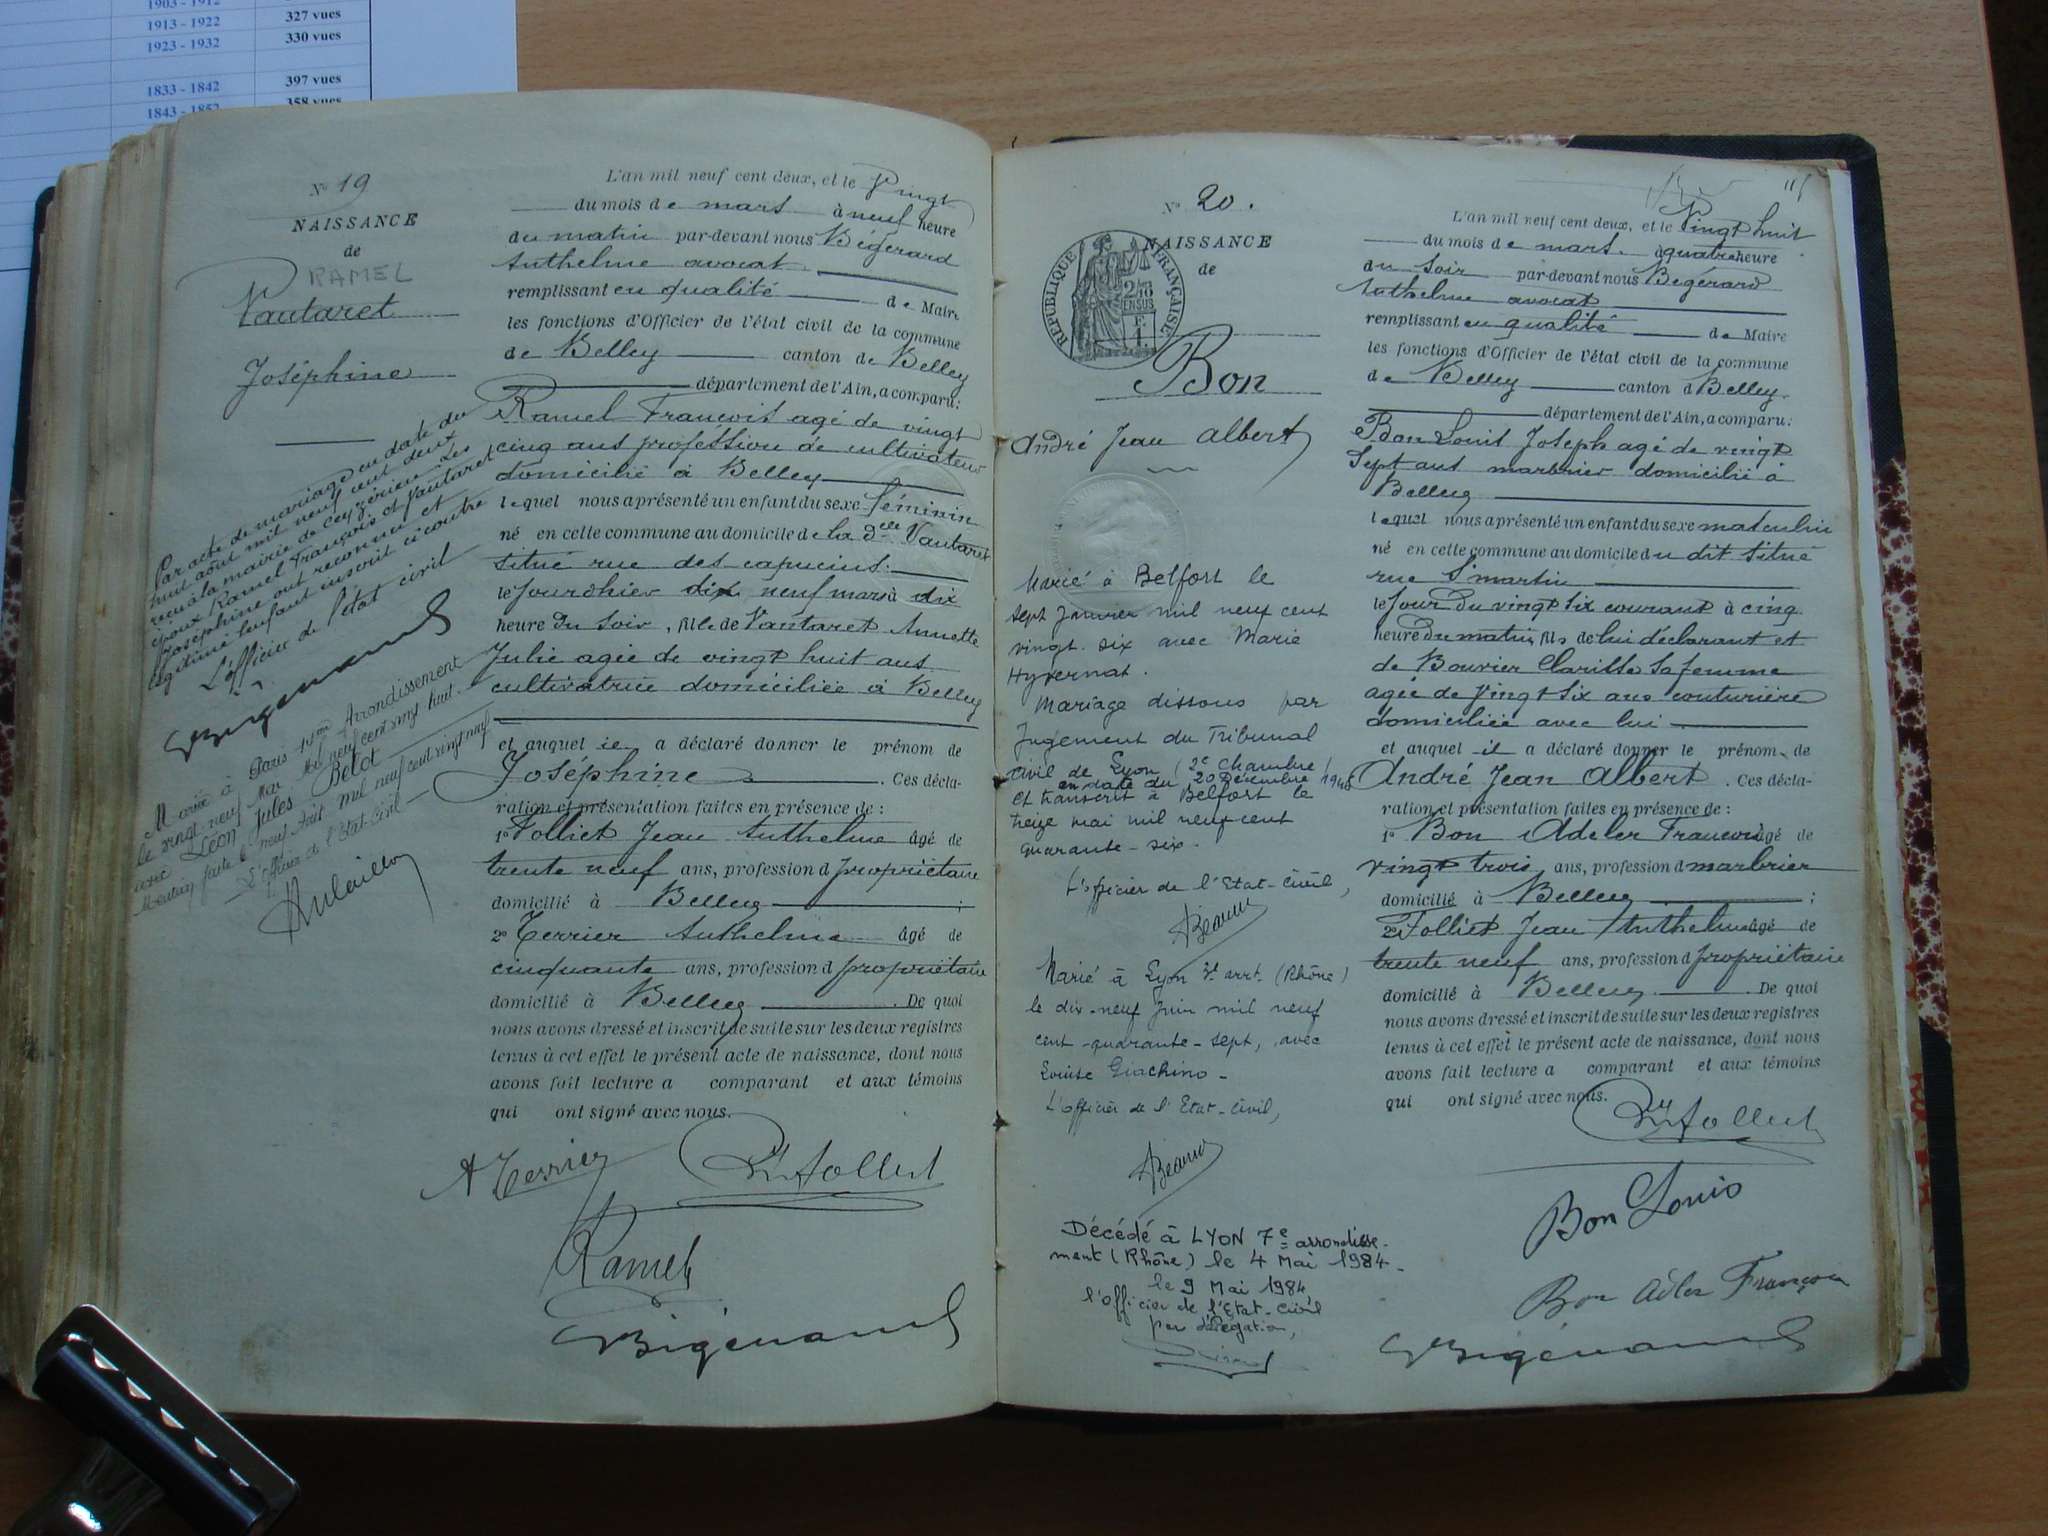 1903 - 1912
1913 - 1922 327 vues
1923 - 1932 330 vues
1833 - 1842 397 vues
1843 - 1852 358 vues
N° 19
NAISSANCE
de
RAMEL
Vautaret
Joséphine
Par acte de mariage en date du
huit août mil neuf cent deux
reçu à la mairie de Ceyzérieu les
époux Ramel François et Vautaret
Joséphine ont reconnu et
légitimé l'enfant inscrit ci contre
L'officier de l'état civil
Mariée à Paris Arrondissement
le vingt neuf Mai Mil neuf cent vingt huit
avec Léon Jules Belot
Mention faite le neuf Août mil neuf cent vingt neuf
L'officier de l'Etat-Civil
L'an mil neuf cent deux, et le Vingt
du mois de mars à neuf heure
du matin par-devant nous Bégérard
Anthelme avocat
remplissant en qualité de Maire
les fonctions d'Officier de l'état civil de la commune
de Belley canton de Belley
département de l'Ain, a comparu:
Ramel François agé de vingt
cinq ans proféssion de cultivateur
domicilié à Belley
lequel nous a présenté un enfant du sexe féminin
né en cette commune au domicile de la dlle Vautaret
situé rue des capucins
le jour d'hier dix neuf mars à dix
heure du soir, fille de Vautaret Annette
Julie agée de vingt huit ans
cultivatrice domiciliée à Belley
et auquel ie a déclaré donner le prénom de
Joséphine . Ces décla-
ration et présentation faites en présence de :
1° Folliet Jean Anthelme âgé de
trente neuf ans, profession d propriétaire
domicilié à Belley ;
2° Terrier Anthelme âgé de
cinquante ans, profession d propriétaire
domicilié à Belley . De quoi
nous avons dressé et inscrit de suite sur les deux registres
tenus à cet effet le présent acte de naissance, dont nous
avons fait lecture a comparant et aux témoins
qui ont signé avec nous.
A Terrier
Folliet
Ramel
N° 20.
NAISSANCE
de
RÉPUBLIQUE FRANÇAISE
Bon
André Jean Albert
Marié à Belfort le
sept Janvier mil neuf cent
vingt six avec Marie
Hyvernat.
Mariage dissous par
Jugement du Tribunal
Civil de Lyon (2e Chambre)
en date du 20 Décembre 1945
et transcrit à Belfort le
treize mai mil neuf cent
quarante-six.
L'officier de l'Etat-Civil,
Marié à Lyon 7e arrt. (Rhône)
le dix-neuf Juin mil neuf
cent-quarante-sept, avec
Louise Giachino-
L'officier de l'Etat-Civil,
Décédé à LYON 7e arrondisse-
ment (Rhône) le 4 Mai 1984-
le 9 Mai 1984
l'officier de l'Etat-Civil
par délégation,
115
L'an mil neuf cent deux, et le Vingt huit
du mois de mars à quatre heure
du soir par-devant nous Bégérard
Anthelme avocat
remplissant en qualité de Maire
les fonctions d'Officier de l'état civil de la commune
de Belley canton d Belley
département de l'Ain, a comparu:
Bon Louis Joseph agé de vingt
Sept ans marbrier domicilié à
Belley
lequel nous a présenté un enfant du sexe masculin
né en cette commune au domicile du dit situé
rue St martin
le jour du vingt six courant à cinq
heure du matin, fils de lui déclarant et
de Bouvier Clarisse sa femme
agée de vingt six ans couturière
domiciliée avec lui
et auquel il a déclaré donner le prénom de
André Jean Albert . Ces décla-
ration et présentation faites en présence de :
1° Bon Adeler François âgé de
vingt trois ans, profession d marbrier
domicilié à Belley ;
2° Folliet Jean Anthelme âgé de
trente neuf ans, profession d propriétaire
domicilié à Belley . De quoi
nous avons dressé et inscrit de suite sur les deux registres
tenus à cet effet le présent acte de naissance, dont nous
avons fait lecture a comparant et aux témoins
qui ont signé avec nous.
Folliet
Bon Louis
Bon Adler François